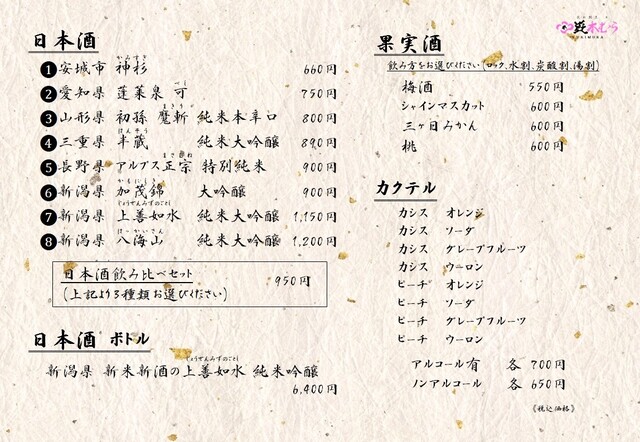 日本酒
❶安城市 神杉 660円
❷愛知県 蓬莱泉 可 750円
❸山形県 初孫 魔斬 純米本辛口 800円
❹三重県 半蔵 純米大吟醸 890円
❺長野県 アルプス正宗 特別純米 900円
❻新潟県 加茂錦 大吟醸 900円
❼新潟県 上善如水 純米大吟醸 1,150円
❽新潟県 八海山 純米大吟醸 1,200円
日本酒飲み比べセット 950円
(上記より3種類お選びください)
日本酒 ボトル
新潟県 新米新酒の上善如水 純米吟醸
6,400円
果実酒
飲み方をお選びください(ロック、水割、炭酸割、湯割)
梅酒 550円
シャインマスカット 600円
三ヶ日みかん 600円
桃 600円
カクテル
カシス オレンジ
カシス ソーダ
カシス グレープフルーツ
カシス ウーロン
ピーチ オレンジ
ピーチ ソーダ
ピーチ グレープフルーツ
ピーチ ウーロン
アルコール有 各 700円
ノンアルコール 各 650円
《税込価格》